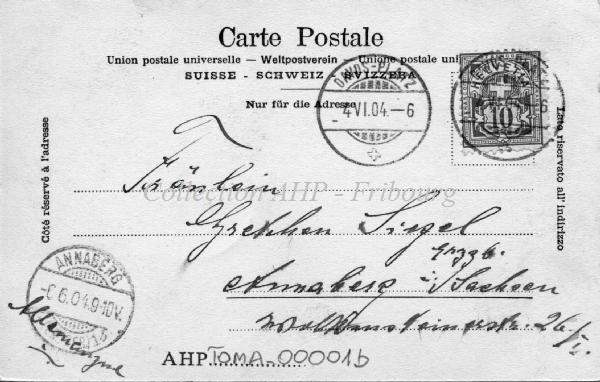 Carte Postale
Union postale universelle — Weltpostverein — Unione postale uni
SUISSE - SCHWEIZ SVIZZERA
Nur für die Adresse
DAVOS-PLATZ
4 VI.04.—6
10
Côté réservé à l'adresse
Lato riservato all' indirizzo
Fräulein
Collection AHP - Fribourg
Gretchen Siegel
Erzgb.
Annaberg i/Sachsen
ANNABERG
6.04.9-10V.
Allemagne
AHP TOMA-00001b